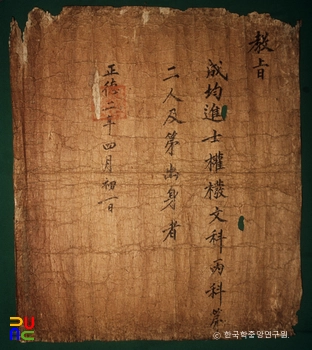 敎旨
成均進士權橃文科丙科第
二人及第出身者
正德二年四月初一日
© 한국학중앙연구원.